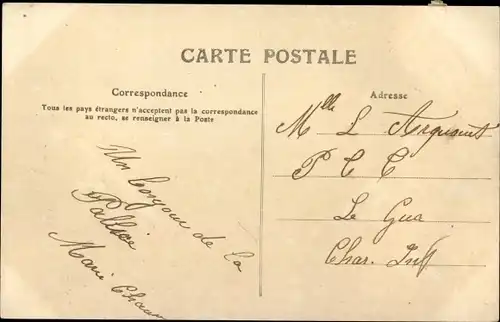 CARTE POSTALE
Correspondance
Tous les pays étrangers n'acceptent pas la correspondance
au recto, se renseigner à la Poste
Un bonjour de la
Pallice
Marie
Adresse
Mlle L
P C C
Le Gua
Char. Inf